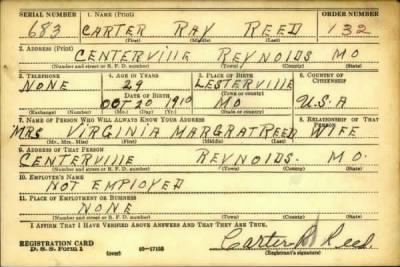 SERIAL NUMBER 1. NAME (Print) ORDER NUMBER
683 CARTER RAY REED 132
(First) (Middle) (Last)
2. ADDRESS (Print)
CENTERVILLE REYNOLDS MO
(Number and street or R. F. D. number) (Town) (County) (State)
3. TELEPHONE 4. AGE IN YEARS 5. PLACE OF BIRTH 6. COUNTRY OF CITIZENSHIP
NONE 29 LESTERVILLE
DATE OF BIRTH (Town or county)
OCT 20 1910 MO U.S.A
(Exchange) (Number) (Mo.) (Day) (Yr.) (State or country)
7. NAME OF PERSON WHO WILL ALWAYS KNOW YOUR ADDRESS 8. RELATIONSHIP OF THAT PERSON
MRS VIRGINIA MARGRAT REED WIFE
(Mr., Mrs., Miss) (First) (Middle) (Last)
9. ADDRESS OF THAT PERSON
CENTERVILLE REYNOLDS. MO.
(Number and street or R. F. D. number) (Town) (County) (State)
10. EMPLOYER'S NAME
NOT EMPLOYED
11. PLACE OF EMPLOYMENT OR BUSINESS
NONE
(Number and street or R. F. D. number) (Town) (County) (State)
I AFFIRM THAT I HAVE VERIFIED ABOVE ANSWERS AND THAT THEY ARE TRUE.
REGISTRATION CARD
D. S. S. Form 1 (over) 16-17105
Carter R Reed
(Registrant's signature)